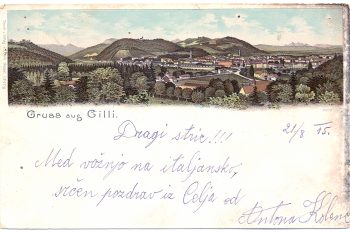 Gruss aus Cilli.
Dragi stric!!! 21/8 15.
Med vožnjo na italjansko,
srčen pozdrav iz Celja od
Antona